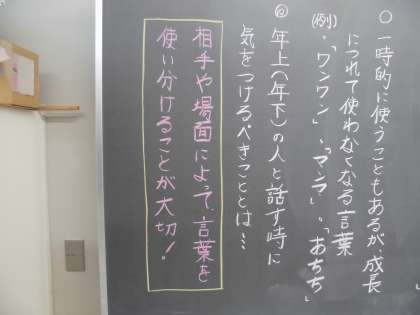 ○ 一時的に使うこともあるが、成長
につれて使わなくなる言葉
(例)・「ワンワン」・「マンマ」・「あちち」
◎ 年上(年下)の人と話す時に
気をつけるべきこととは…
相手や場面によって、言葉を
使い分けることが大切!